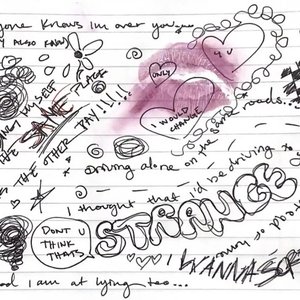 yone knows im over you
y also know
4 U
ONLY
I WOULD
CHANGE
MYSELF
PLACE
THE SAME
THE OTHER DAY!!!!
driving alone on the same roads...
I thought that i'd be driving to y
DON'T U
THINK
THATS
STRANGE
WANNA
od I am at lying too...